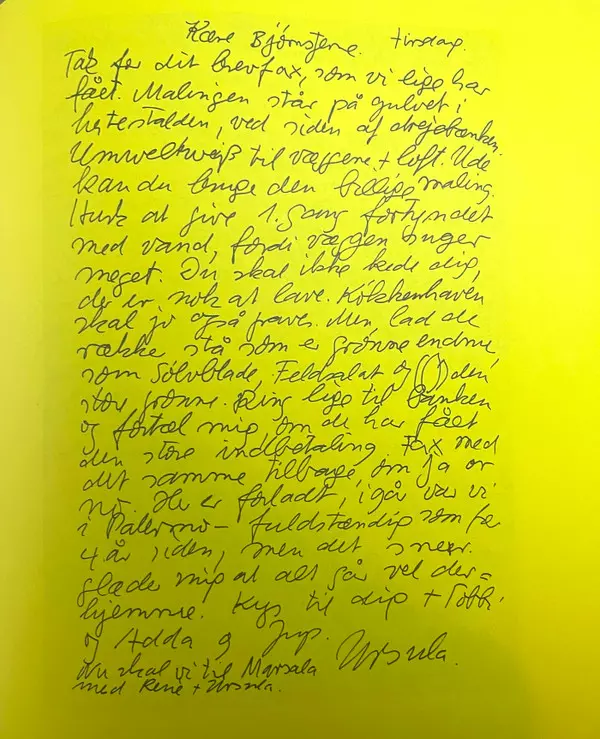 Kære Bjørnstjerne. tirsdag.
Tak for dit brevfax, som vi lige har
fået. Malingen står på gulvet i
hestestalden, ved siden af drejebænken.
Umweltweiß til væggene + loft. Ude
kan du bruge den billige maling.
Husk at give 1. gang fortyndet
med vand, fordi væggen suger
meget. Du skal ikke kede dig,
der er nok at lave. Køkkenhaven
skal jo også graves. Men, lad de
række stå som er grønne endnu
som Sølvblade, Feldsalat og den
store grønne. Ring lige til Banken
og fortæl mig, om de har fået
den store indbetaling. Fax med
det samme tilbage, om ja or
nò. Her er forladt, i går var vi
i Palermo – fuldstændig som for
4 år siden, men det sneer.
glæder mig at alt går vel der=
hjemme. Kys til dig + Tobbi
og Adda og Jup.
Ursula.
Nu skal vi til Marsala
med René + Ursula.